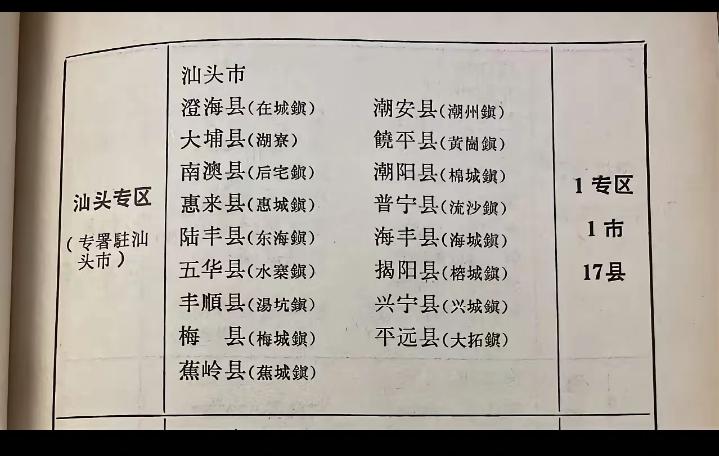 汕头专区
（专署駐汕
头市）
汕头市
澄海县（在城鎭） 潮安县（潮州鎭）
大埔县（湖寮） 饒平县（黃崗鎭）
南澳县（后宅鎭） 潮阳县（棉城鎭）
惠来县（惠城鎭） 普宁县（流沙鎭）
陆丰县（东海鎭） 海丰县（海城鎭）
五华县（水寨鎭） 揭阳县（榕城鎭）
丰順县（湯坑鎭） 兴宁县（兴城鎭）
梅　县（梅城鎭） 平远县（大拓鎭）
蕉岭县（蕉城鎭）
1专区
1市
17县